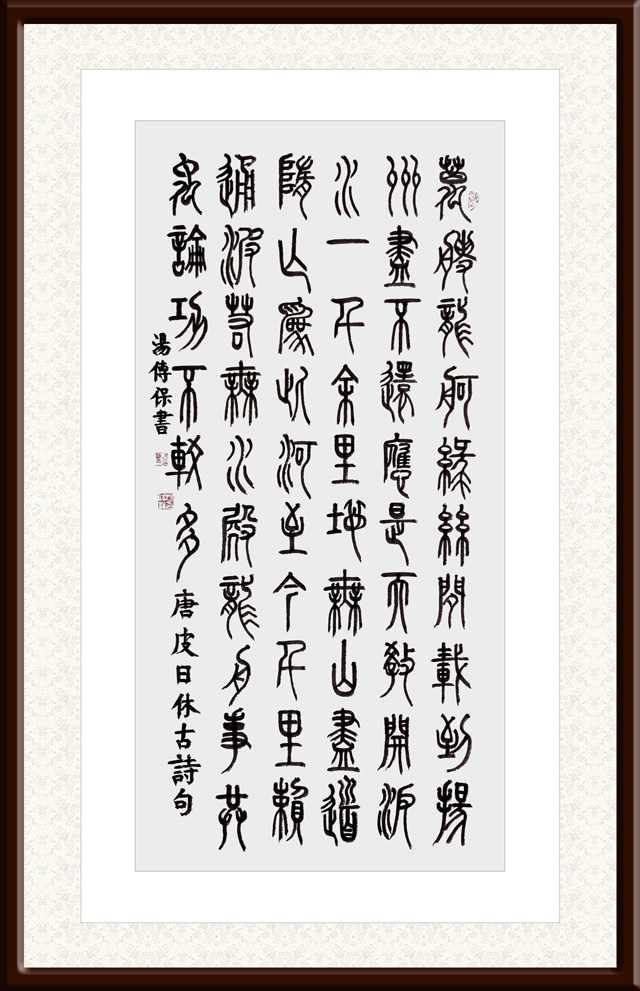 萬艘龍舸緑絲間載到揚
州盡不還應是天教開汳
水一千余里地無山盡道
隋亡為此河至今千里賴
通波若無水殿龍舟事共
禹論功不較多唐皮日休古詩句
湯傳保書